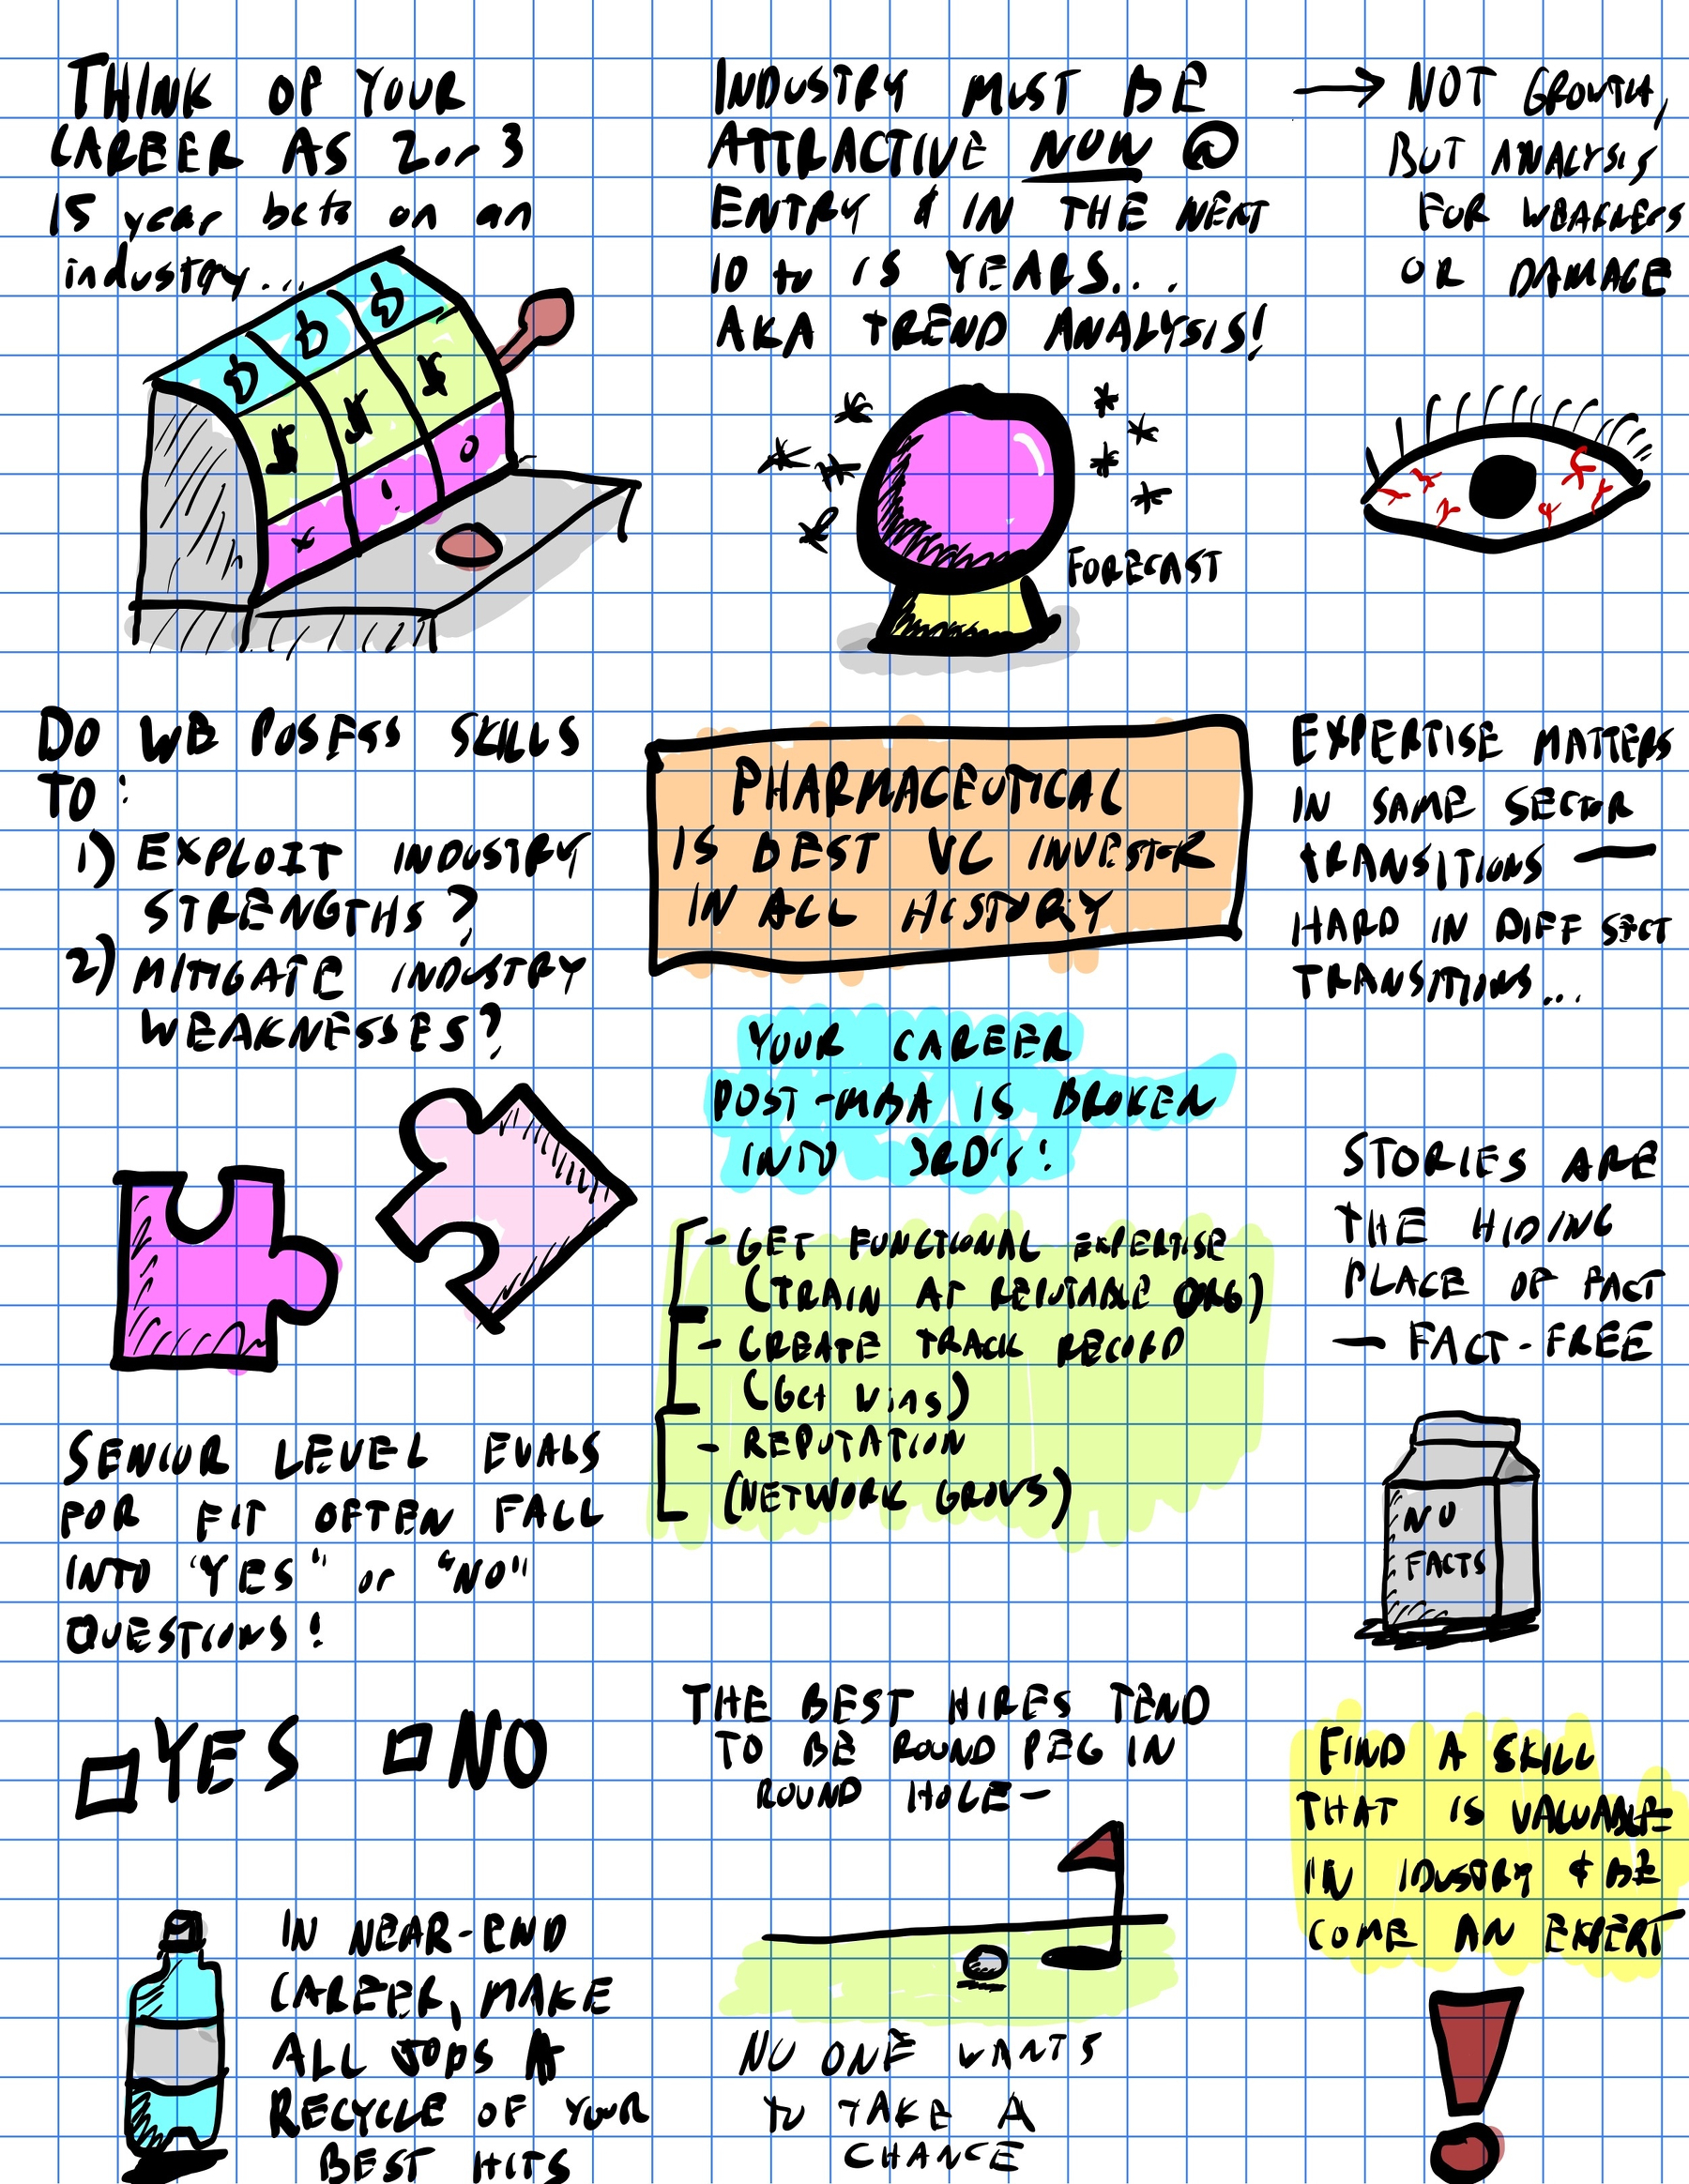 THINK OF YOUR
CAREER AS 2 or 3
15 year bets on an
industry...
INDUSTRY MUST BE
ATTRACTIVE NOW @
ENTRY & IN THE NEXT
10 to 15 YEARS...
AKA TREND ANALYSIS!
→ NOT GROWTH,
BUT ANALYSIS
FOR WEAKNESS
OR DAMAGE
$ $ $
x ! O
FORECAST
DO WE POSESS SKILLS
TO:
1) EXPLOIT INDUSTRY
STRENGTHS?
2) MITIGATE INDUSTRY
WEAKNESSES?
PHARMACEUTICAL
IS BEST VC INVESTOR
IN ALL HISTORY
EXPERTISE MATTERS
IN SAME SECTOR
TRANSITIONS —
HARD IN DIFF SECT
TRANSITIONS...
YOUR CAREER
POST-MBA IS BROKEN
INTO 3RD's!
- GET FUNCTIONAL EXPERTISE
(TRAIN AT REPUTABLE ORG)
- CREATE TRACK RECORD
(Get Wins)
- REPUTATION
(NETWORK GROWS)
STORIES ARE
THE HIDING
PLACE OF FACT
— FACT-FREE
NO
FACTS
SENIOR LEVEL EVALS
FOR FIT OFTEN FALL
INTO "YES" or "NO"
QUESTIONS!
YES NO
THE BEST HIRES TEND
TO BE ROUND PEG IN
ROUND HOLE —
FIND A SKILL
THAT IS VALUABLE
IN IDUSTRY & BE
COME AN EXPERT
IN NEAR-END
CAREER, MAKE
ALL JOBS A
RECYCLE OF YOUR
BEST HITS
NO ONE WANTS
TO TAKE A
CHANCE